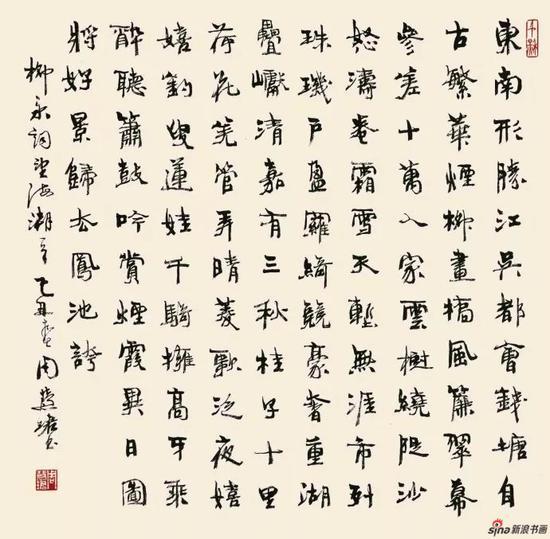 東南形勝江吳都會錢塘自
古繁華煙柳畫橋風簾翠幕
參差十萬人家雲樹繞堤沙
怒濤卷霜雪天塹無涯市列
珠璣戶盈羅綺競豪奢重湖
疊巘清嘉有三秋桂子十里
荷花羌管弄晴菱歌泛夜嬉
嬉釣叟蓮娃千騎擁高牙乘
醉聽簫鼓吟賞煙霞異日圖
將好景歸去鳳池誇
柳永詞望海潮 丑 周慧珺書
sina新浪书画